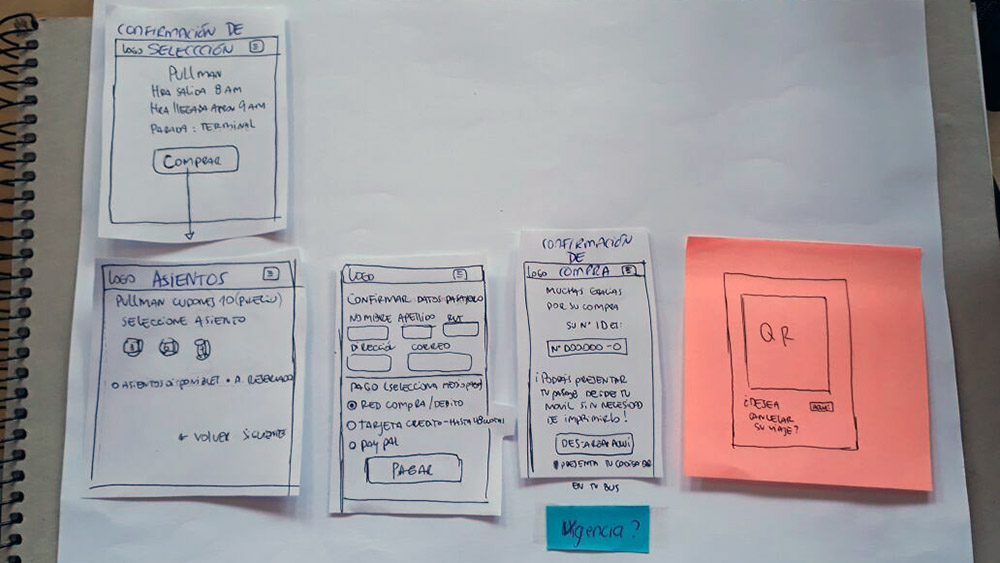 CONFIRMACIÓN DE
LOGO SELECCCIÓN
PULLMAN
HRA SALIDA 8 AM
HRA LLEGADA APROX 9 AM
PARADA : TERMINAL
COMPRAR
LOGO ASIENTOS
PULLMAN
SELECCIONE ASIENTO
1 2 3
• A. RESERVADO
← VOLVER SIGUIENTE
LOGO
CONFIRMAR DATOS PASAJERO
NOMBRE APELLIDO RUT
DIRECCIÓN CORREO
PAGO (SELECCIONA MEDIO PAGO)
RED COMPRA/DEBITO
TARJETA CREDITO-HASTA
PAYPAL
PAGAR
CONFIRMACIÓN
DE
LOGO COMPRA
MUCHAS GRACIAS
POR SU COMPRA
SU N° ID ES:
N° 000.000-0
¡PODRÁS PRESENTAR
TU PASAJE DESDE TU
MOVIL SIN NECESIDAD
DE IMPRIMIRLO!
AQUÍ
PRESENTA TU CODIGO QR
EN TU BUS
Agencia?
QR
¿DESEA AQUÍ
CANCELAR
SU VIAJE?